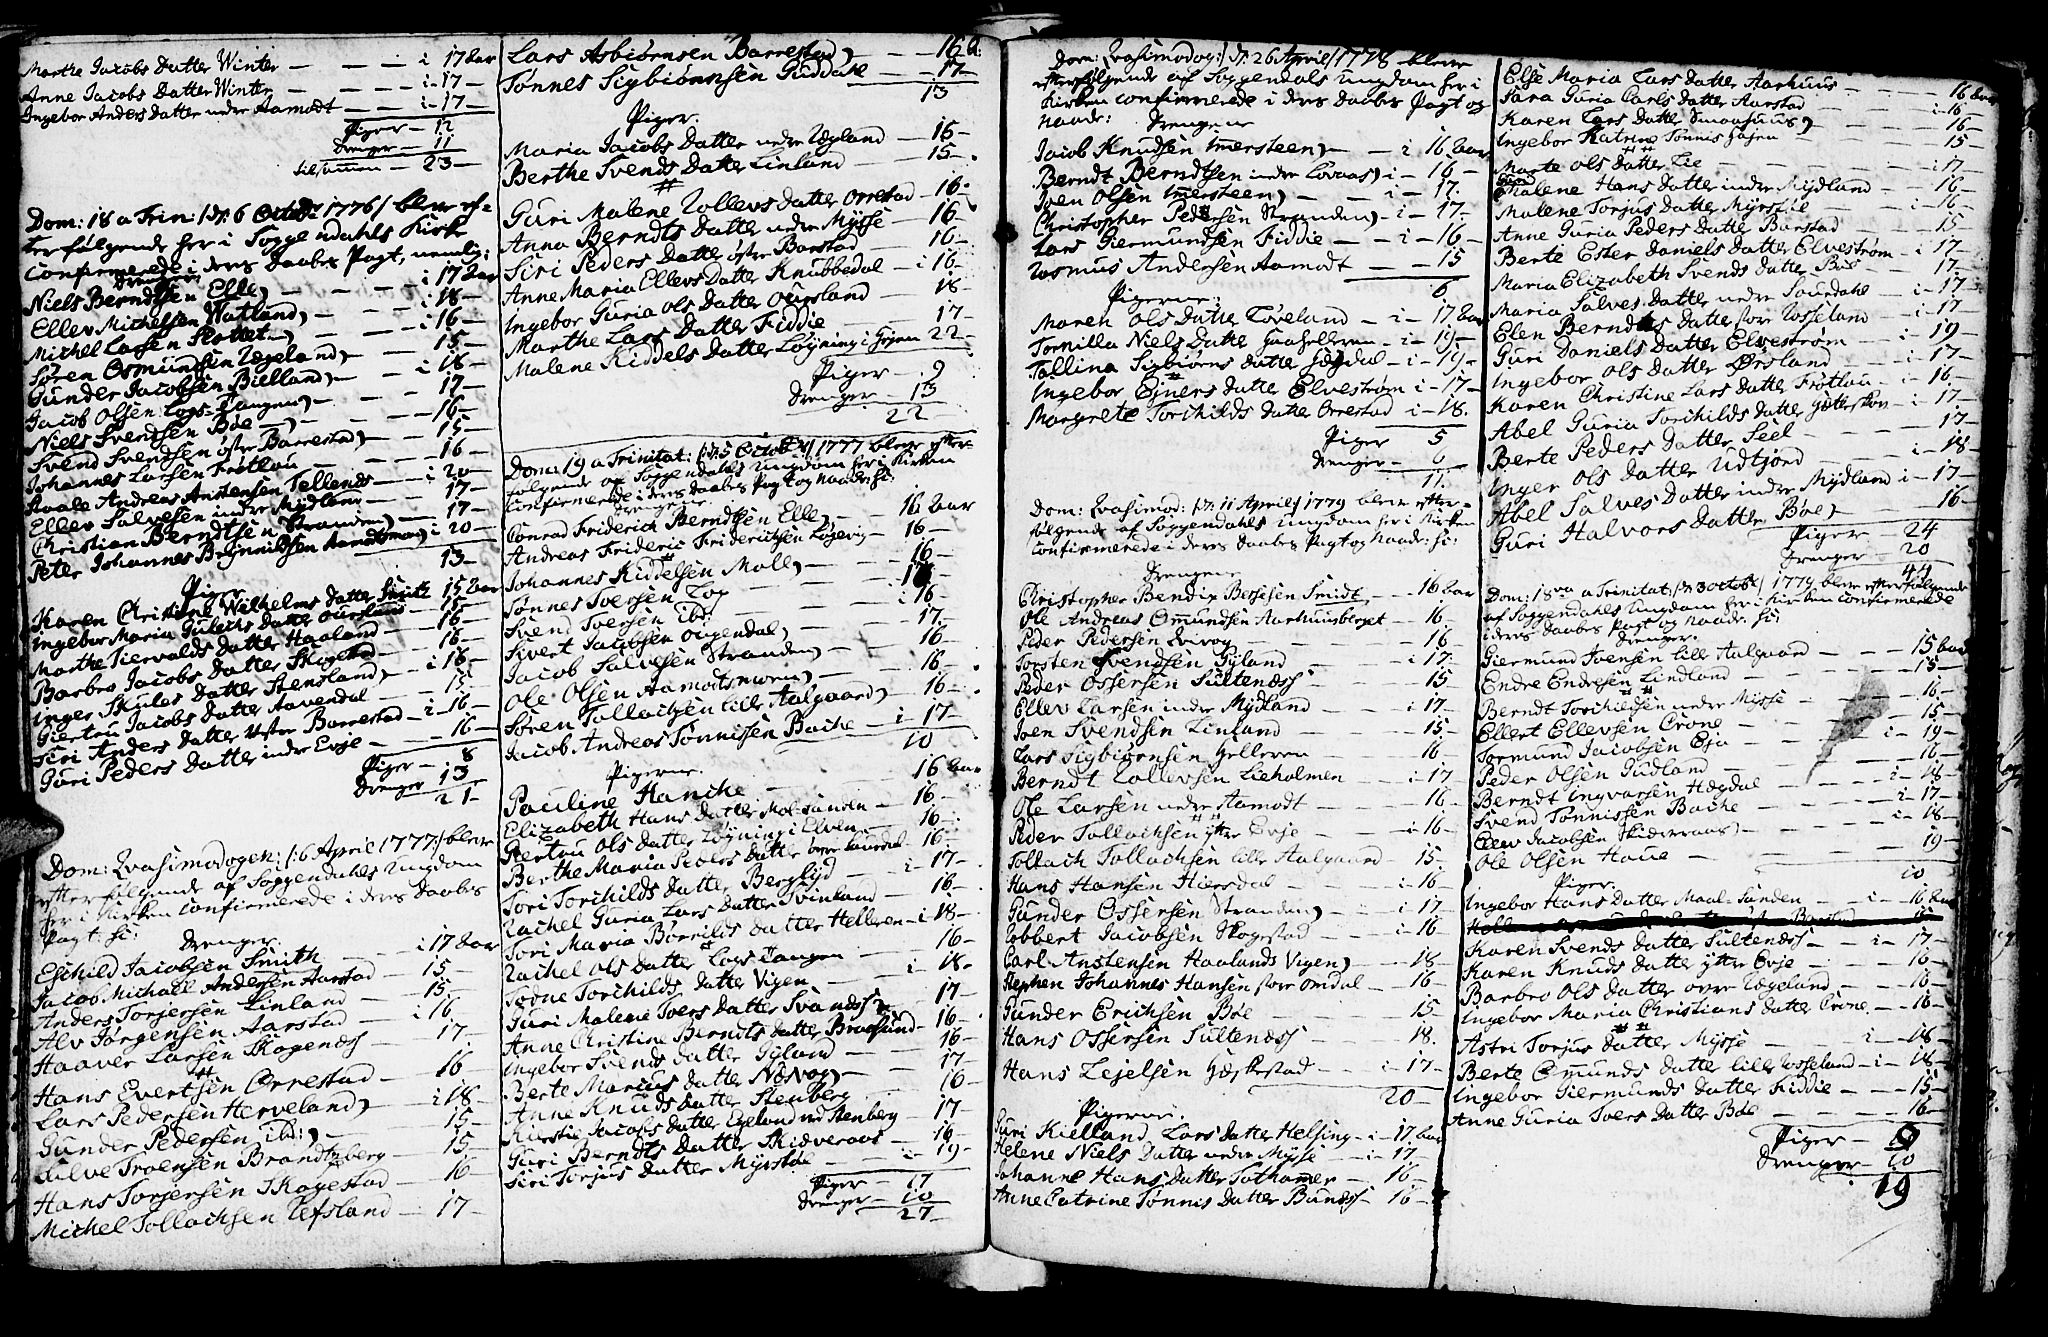 Marthe Jacobs Datter Winter — — — i 17 Aar
Anne Jacobs Datter Winter — — — i 17 —
Ingebor Anders Datter nedre Aamodt — — i 17 —
Piger — 12
Drenger — 11
23 —
Dom: 18 a Trin: /: d: 6 Octob: 1776 :/ bleve ef-
terfølgende her i Soggendahls Kirke
confirmerede i deres Daabes Pagt, nemlig:
Drenger
Niels Berndtsen Elle — — — i 17 Aar
Ellev Michelsen Watland — — i 18 —
Michel Larsen Plottet — — i 16 —
Søren Osmundsen Ægeland — 15 —
Gunder Jacobsen Bielland — i 18 —
Jacob Olsen Logs-Tangen — 17 —
Niels Svendsen Bøe — — 16 —
Svend Svendsen øfre Barrestad — 15 —
Johannes Larsen Frøtlou — 16 —
Andreas Anstensen Tellends — i 20 —
Ellev Salvesen indre Mydland — 17 —
Christian Berndtsen Stranden — 17 —
Peter Johannes Aamodtsmoen i 20 —
13 —
Piger
Karen Christine Wilhelms Datter Smith 15 Aar
Ingebor Maria Gulichs Datter Oursland 15 —
Marthe Siervalds Datter Haaland — 16 —
Barbro Jacobs Datter Skogestad — 16 —
Inger Skules Datter Stensland — i 18 —
Giertou Jacobs Datter Aavendal — 15 —
Siri Anders Datter øfre Barrestad — i 16 —
Guri Peders Datter indre Evje — 16 —
Piger — 8
Drenger — 13
21 —
Dom: Qvasimodogen: /: 6 April 1777 :/ bleve
efterfølgende af Soggendahls Ungdom
her i Kirken confirmerede i deres Daabes
Pagt: si: Drenger
Eschild Jacobsen Smith — i 17 Aar
Jacob Michael Andersen Aarstad 15 —
Anders Torjersen Linland — 15 —
Alv Jørgensen Aarstad — i 16
Haaver Larsen Skogends — 17 —
Hans Evertsen Orrestad — 16
Lars Pedersen Herveland — i 18 —
Gunder Pedersen ib: — 15 —
Salve Troensen Brandtzberg — 15 —
Hans Torjersen Skogestad — 16
Michel Tollachsen Refsland — 17 —
Lars Asbiørnsen Barrestad — — 16 A:
Tønnes Sigbiørnsen Guddahl — 17 —
13
Piger.
Maria Jacobs Datter nedre Ægland — 16 —
Berthe Svends Datter Linland — 15 —
Guri Malene Rollevs Datter Orrestad — 16 —
Anna Berndts Datter nedre Mysse — 16 —
Siri Peders Datter øfre Barstad — 16 —
Anne Maria Ellevs Datter Knubbedal — i 16 —
Ingebor Guria Ols Datter Oursland — 18 —
Marthe Lars Datter Fiddie — 17 —
Malene Kiddels Datter Løgning i Heien 22 —
Piger — 9
Drenger — 13
22 —
Dom: 19 a Trinitat: /: d: 5 Octob: 1777 bleve efter-
følgende af Soggendahls Ungdom her i Kirken
confirmerede i deres Daabes Pagt og Naade: si:
Drengene
Conrad Friderich Berndtsen Elle — 16 Aar
Andreas Frideric Friderichsen Løgevig — 16 —
Johannes Kiddelsen Moll — — 16 —
Tønnes Iversen Log — — 16 —
Svend Iversen ib: — — i 16 —
Sivert Jacobsen Ougendal — 17 —
Jacob Salvesen Stranden — 16 —
Ole Olsen Aamodtsmoen — — 16 —
Søren Tollachsen lille Aalgaard — 16 —
Jacob Andreas Tønnissen Bache — i 17 —
10
Pigerne.
Pauline Hancke — — 16 Aar
Elizabeth Hans Datter Mol-Sanden — 16 —
Giertou Ols Datter Løgning i Elven — 16 —
Berthe Maria Peders Datter over Saurdal 16 —
Tori Torchilds Datter Berglyd — i 17 —
Rachel Guria Lars Datter Tvinland — 16 —
Tori Maria Børrilds Datter Helleren — i 18 —
Rachel Ols Datter Logs Tangen — 16 —
Todne Torchilds Datter Vigen — i 18 —
Guri Malene Ivers Datter Svandsse 17 —
Anne Christine Berndts Datter 16 —
Ingebor Svends Datter Gyland — 16 —
Berte Marcus Datter — 17 —
Anne Knuds Datter Stenberg — 16 —
Kierstie Jacobs Datter Egeland ved Stenberg 17 —
Guri Berndts Datter Skidveraas — 16 —
Siri Torjus Datter Myrstøl — i 19 —
Piger — 17
Drenger — 10
27 —
Dom: Qvasimodog: /: d: 26 April 1778 bleve
efterfølgende af Soggendals Ungdom her i
Kirken confirmerede i deres Daabes Pagt og
Naade: Drengene
Jacob Knudsen Immersteen — i 16 Aar
Berndt Berndtsen indre Lovaas i — 16 —
Iven Olsen Immersteen — — i — 17.
Christopher Pedersen Stranden — i — 17 —
Lars Giermundsen Fiddie — — i — 16 —
Rasmus Andersen Aamodt — — 15
6
Pigerne:
Maren Ols Datter Løveland — i — 17 Aar
Tornilla Niels Datter — i — 19 —
Tallina Sigbiørns Datter Hægdal — i — 19 —
Ingebor Ejners Datter Elvestrøm i — 17 —
Margrete Torchilds Datter Orrestad i — 18.
Piger 5
Drenger — 6
11.
Dom: Qvasimod: /: d: 11 April 1779 bleve efter-
følgende af Soggendahls Ungdom her i Kirken
confirmerede i deres Daabes Pagt og Naade: si:
Drengene
Christopher Bendix Bessesen Smidt — 16 Aar
Ole Andreas Ommundsen Aarhuusberget — 16.
Peder Pedersen Qvivog — — 16 —
Torsten Svendsen Gyland — — i 17 —
Peder Ossersen Sultendss — — 15 —
Ellev Larsen indre Mydland — — i 17 —
Iven Svendsen Linland — — 15 —
Lars Sigbiørnsen Helleren — — 16 —
Berndt Rollevsen Lieholmen — — i 17
Ole Larsen nedre Aamodt — — 16 —
Peder Tollachsen ytre Evje — — i 16 —
Tollach Tollachsen lille Aalgaard — 15 —
Hans Hansen Hæsdal — — i 16 —
Gunder Ossersen Stranden — — i 17
Robbert Jacobsen Skogestad — — i 16
Carl Anstensen Haalands Vigen — 18 —
Stephen Johannes Hansen store Omdal — 16
Gunder Erichsen Bøe — — 15
Hans Ossersen Sultendss — — 18.
Hans Lejelsen Gæskestad — — i 17 —
20 —
Pigerne.
Guri Kielland Lars Datter Helsing — i — 17 Aar
Helene Niels Datter nedre Mysse — i — 17
Johanne Hans Datter Tothamer — 16 —
Anne Catrine Tønnis Datter Bundss 16 —
Else Maria Lars Datter Aarhuus — — 16 Aar
Sara Guria Carls Datter Aarstad — — i 16 —
Karen Lars Datter Smaahuus — — 16 —
Ingebor Katrine Tønnis — — 15 —
Marte Ols Datter Lie — — i 17 —
Malene Hans Datter indre Mydland — 16 —
Malene Torjus Datter Myrstøl — — i — 16 —
Anne Guria Peders Datter Barstad — 15 —
Berte Ester Daniels Datter Elvestrøm — i 17 —
Maria Elizabeth Svends Datter Bøe — 17 —
Maria Salves Datter nedre Saurdahl — i — 17
Elen Berndts Datter store Rosseland — i 17
Guri Daniels Datter Elvestrøm — i 19 —
Ingebor Ols Datter Ørsland — — i — 17 —
Karen Christine Lars Datter Frøtlou — i — 16
Abel Guria Torchilds Datter — i — 17 —
Berte Peders Datter Seel — — 17 —
Inger Ols Datter Udtjord — — i — 18 —
Abel Salves Datter indre Mydland i — 17 —
Guri Halvors Datter Bøe — — 16 —
Piger — 24
Drenger — 20
44
Dom: 18va a Trinitat: /: d: 3 Octob: / 1779 bleve efterfølgende
af Soggendahls Ungdom her i Kirken confirmerede
i deres Daabes Pagt og Naade: si:
Drenger.
Giermund Ivensen lille Aalgaard — — 15 Aar
Endre Endresen Lindland — — 15 —
Berndt Torchildsen nedre Mysse — — 16 —
Ellert Ellevsen Crone — — 15 —
Tormund Jacobsen Eja — — i — 19 —
Peder Olsen Gudland — — 16 —
Berndt Ingvarsen Hægdal — — i — 18 —
Svend Tønnissen Bache — — i — 17 —
Ellev Jacobsen Skideraas — — i — 18 —
Ole Olsen Haue — — 19 —
10
Piger.
Ingebor Hans Datter Maal-Sanden — i — 16 Aar
Karen Svends Datter Sultendss — i — 17 —
Karen Knuds Datter ytre Evje — — 16 —
Barbro Ols Datter over Ægeland — — 16 —
Ingebor Maria Christians Datter Crone — 16 —
Astri Torjus Datter Mysse — i — 18 —
Berte Ommunds Datter lille Rosseland — i — 18 —
Ingebor Giermunds Datter Fiddie — — 15 —
Anne Guria Ivers Datter Bøe — — 16 —
Piger — 9
Drenger — 10
19